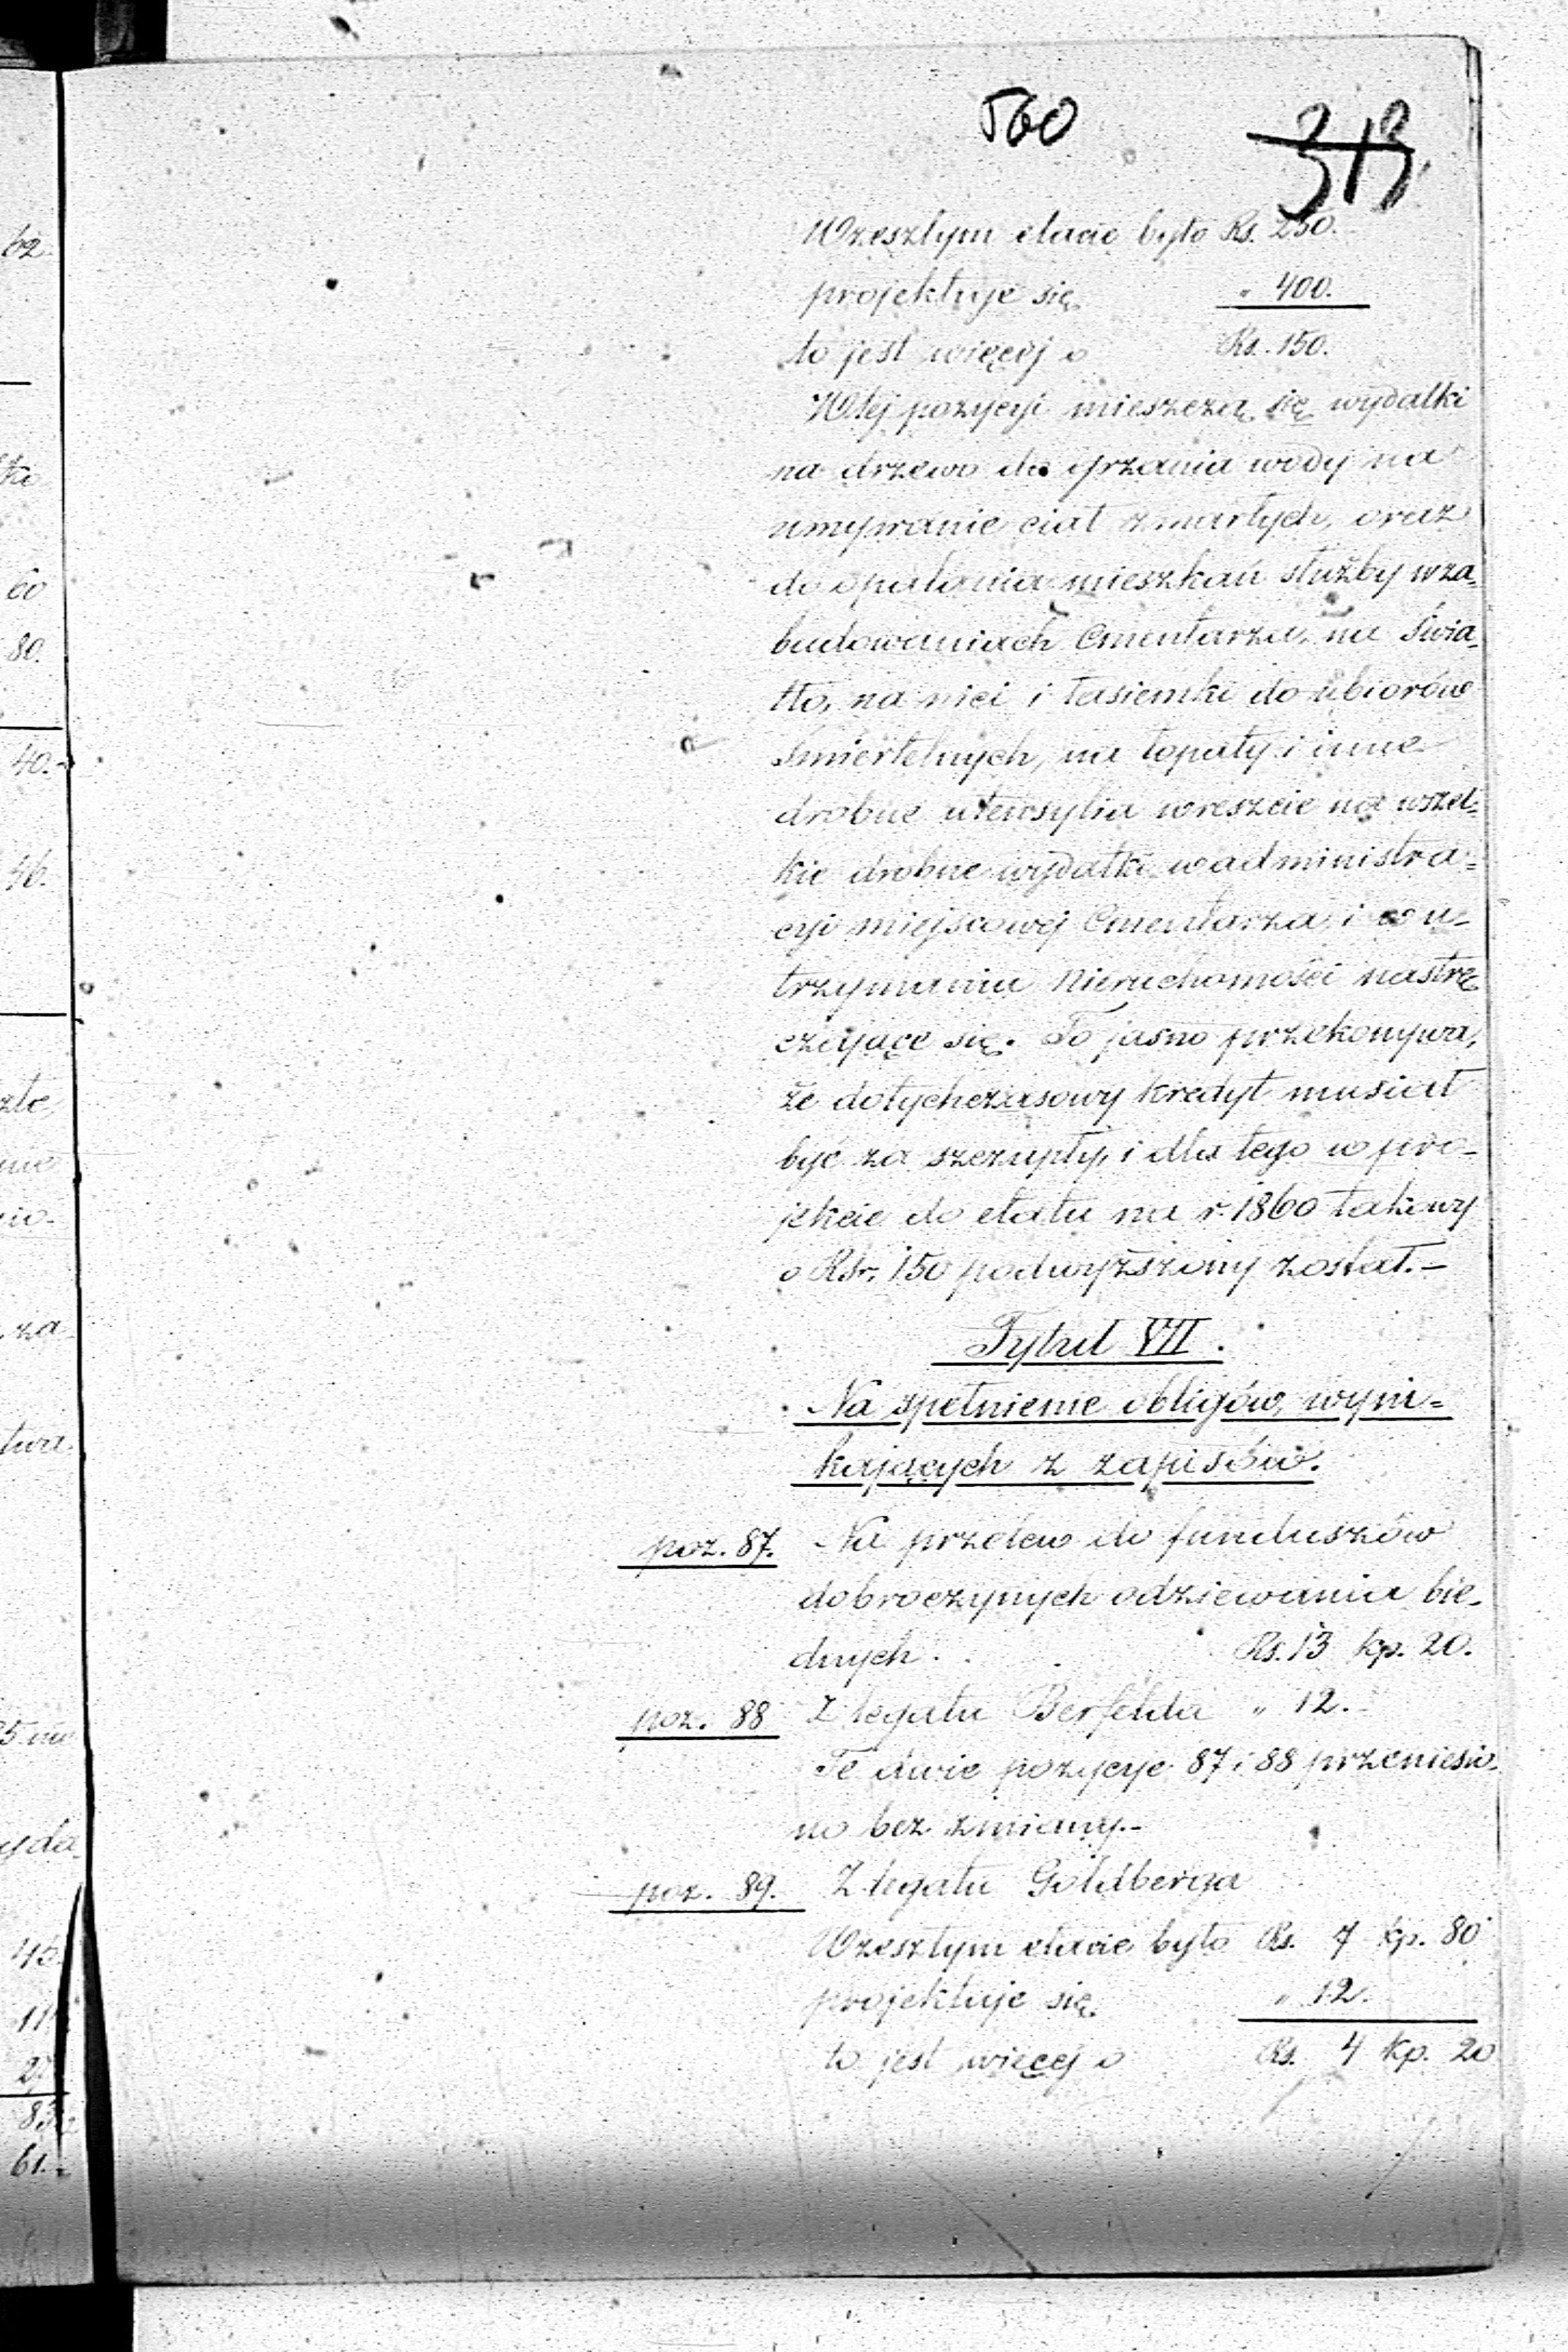 560
313
Wzeszłym etacie było Rs. 250.
projektuje się " 400.
to jest więcej o Rs. 150.
Wtej pozycyi mieszczą się wydatki
na drzewo do grzania wody na
umywanie ciał zmarłych, oraz
do opalania mieszkań służby wza-
budowaniach Cmentarza, na świa-
tło, na nici i tasiemki do ubiorów
śmiertelnych, na łopaty i inne
drobne utensylia wreszcie na wszel-
kie drobne wydatki w administra-
cyi miejscowej Cmentarza i w u-
trzymaniu Nieruchomości nastrę
czające się. To jasno przekonywa,
że dotychczasowy kredyt musiał
być za szczupły, i dla tego w pro-
jekcie do etatu na r. 1860 takowy
o Rsr. 150 podwyższony został.-
Tytuł VII.
Na spełnienie obligów, wyni-
kających z zapisów.
poz. 87. Na przelew do funduszów
dobroczynnych odziewania bie-
dnych . . . Rs. 13 kp. 20.
poz. 88 Z legatu Berfelda " 12.-
Te dwie pozycye 87 i 88 przeniesio-
no bez zmiany.-
poz. 89. Z legatu Goldberga
Wzeszłym etacie było Rs. 7 kp. 80
projektuje się " 12.
to jest więcej o Rs. 4 kp. 20
62.
60
80.
40.-
46.
za
twa
45.
11
83
61.-